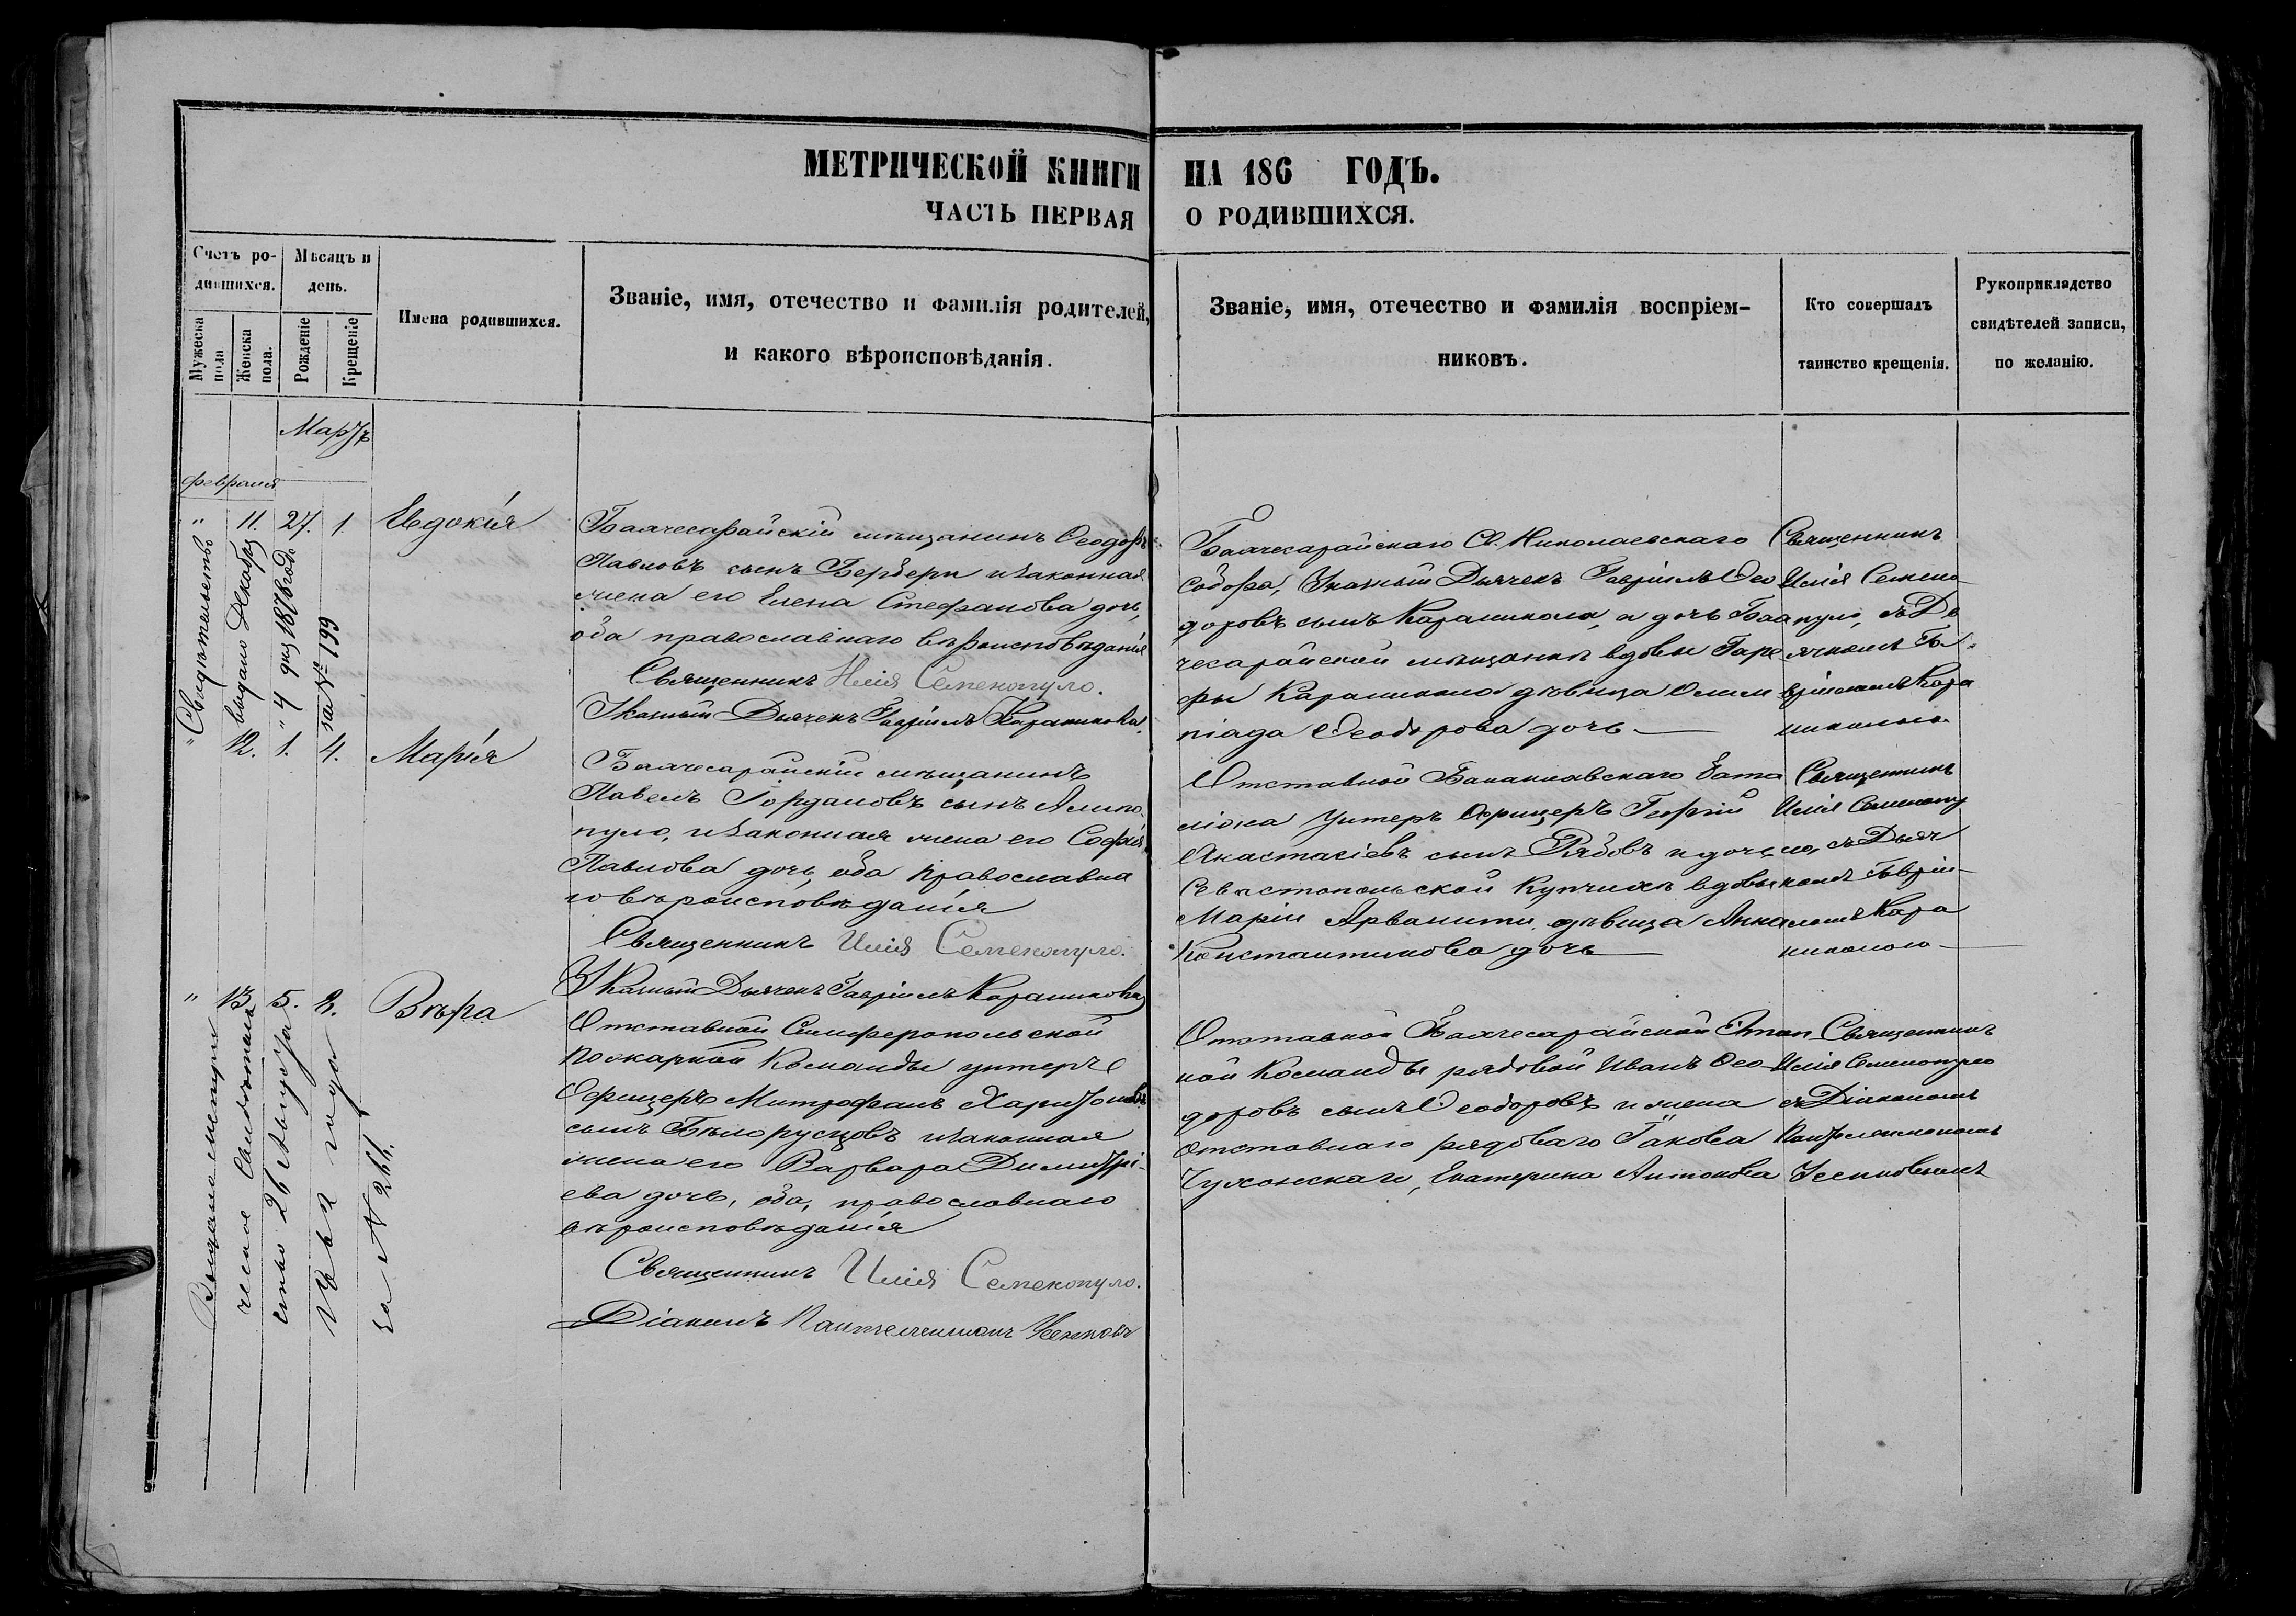 МЕТРИЧЕСКОЙ КНИГИ НА 186 ГОДЪ.
ЧАСТЬ ПЕРВАЯ О РОДИВШИХСЯ.
Счетъ ро-
дившихся.
Мужеска
пола
Женска
пола.
Мѣсяцъ и
день.
Рожденіе
Крещеніе
Имена родившихся.
Званіе, имя, отечество и фамилія родителей,
и какого вѣроисповѣданія.
Званіе, имя, отечество и фамилія воспріем-
никовъ.
Кто совершалъ
таинство крещенія.
Рукоприкладство
свидѣтелей записи,
по желанію.
Мартъ
февраля
" 11. 27. 1. Евдокія
Бахчесарайскій мѣщанинъ Ѳеодоръ
Павловъ сынъ Бербери и законная
жена его Елена Стефанова дочь,
оба православнаго вѣроисповѣданія
Священникъ Илія Семенопуло.
Указный Дьячекъ Гавріилъ Караникола.
Бахчесарайскаго Св. Николаевскаго
Собора, Указный Дьячекъ Гавріилъ Ѳео
доровъ сынъ Караникола, и дочь Бах
чесарайской мѣщанки вдовы Гаре
фы Караникола дѣвица Олим
піада Ѳеодорова дочь
Священникъ
Илія Семено
пуло, съ Дь
ячкомъ Га
вріиломъ Кара
николою
Свидѣтельство
выдано Декабря
" 4 дня 1878 года
за № 199
" 12. 1. 4. Марія
Бахчесарайскій мѣщанинъ
Павелъ Іордановъ сынъ Алипо
пуло, и законная жена его Софія
Павлова дочь, оба православна
го вѣроисповѣданія
Священникъ Илія Семенопуло.
Указный Дьячекъ Гавріилъ Караникола
Отставной Балаклавскаго бата
ліона Унтеръ Офицеръ Георгій
Анастасіевъ сынъ Рябовъ и дочь
Севастопольской Купчихи вдовы
Маріи Арванити, дѣвица Анна
Константинова дочь
Священникъ
Илія Семенопу
ло, съ Дьяч
комъ Гавріи
ломъ Кара
николою
" 13. 5. 8. Вѣра
Отставной Симферопольской
пожарной Команды унтеръ
Офицеръ Митрофанъ Харитоновъ
сынъ Бѣлорусцовъ и законная
жена его Варвара Димитрі-
ева дочь, оба, православнаго
вѣроисповѣданія
Священникъ Илія Семенопуло.
Діаконъ Пантелеимонъ Усенковъ
Отставной Бахчесарайской Этап
ной Команды рядовой Иванъ Ѳео
доровъ сынъ Ѳеодоровъ и жена
отставнаго рядоваго Іакова
Чухонскаго, Екатерина Антонова
Священникъ
Илія Семенопуло
съ Діакономъ
Пантелеимономъ
Усенковымъ
Выдано метри
ческое Свидѣтель
ство 26 Августа
за № 266.